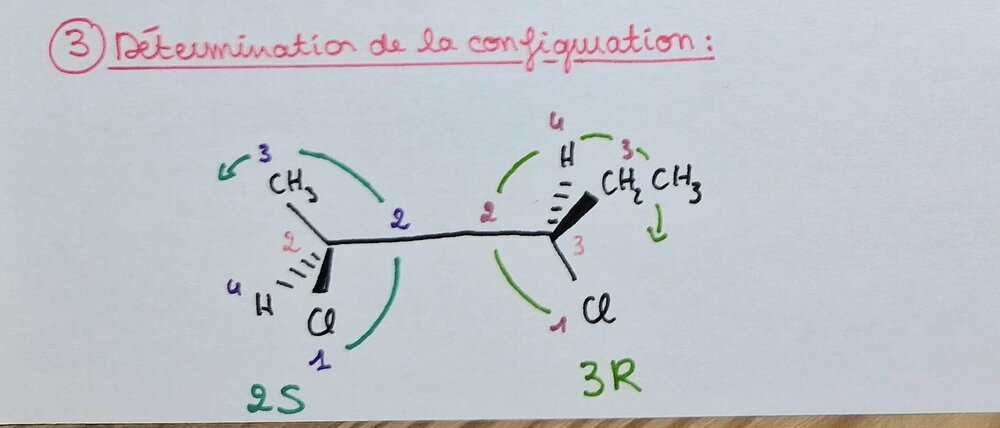 ③ Détermination de la configuration :
4
3 H 3
CH₃ CH₂CH₃
2 2
2 3
4 H
Cl 1 Cl
1
2S 3R